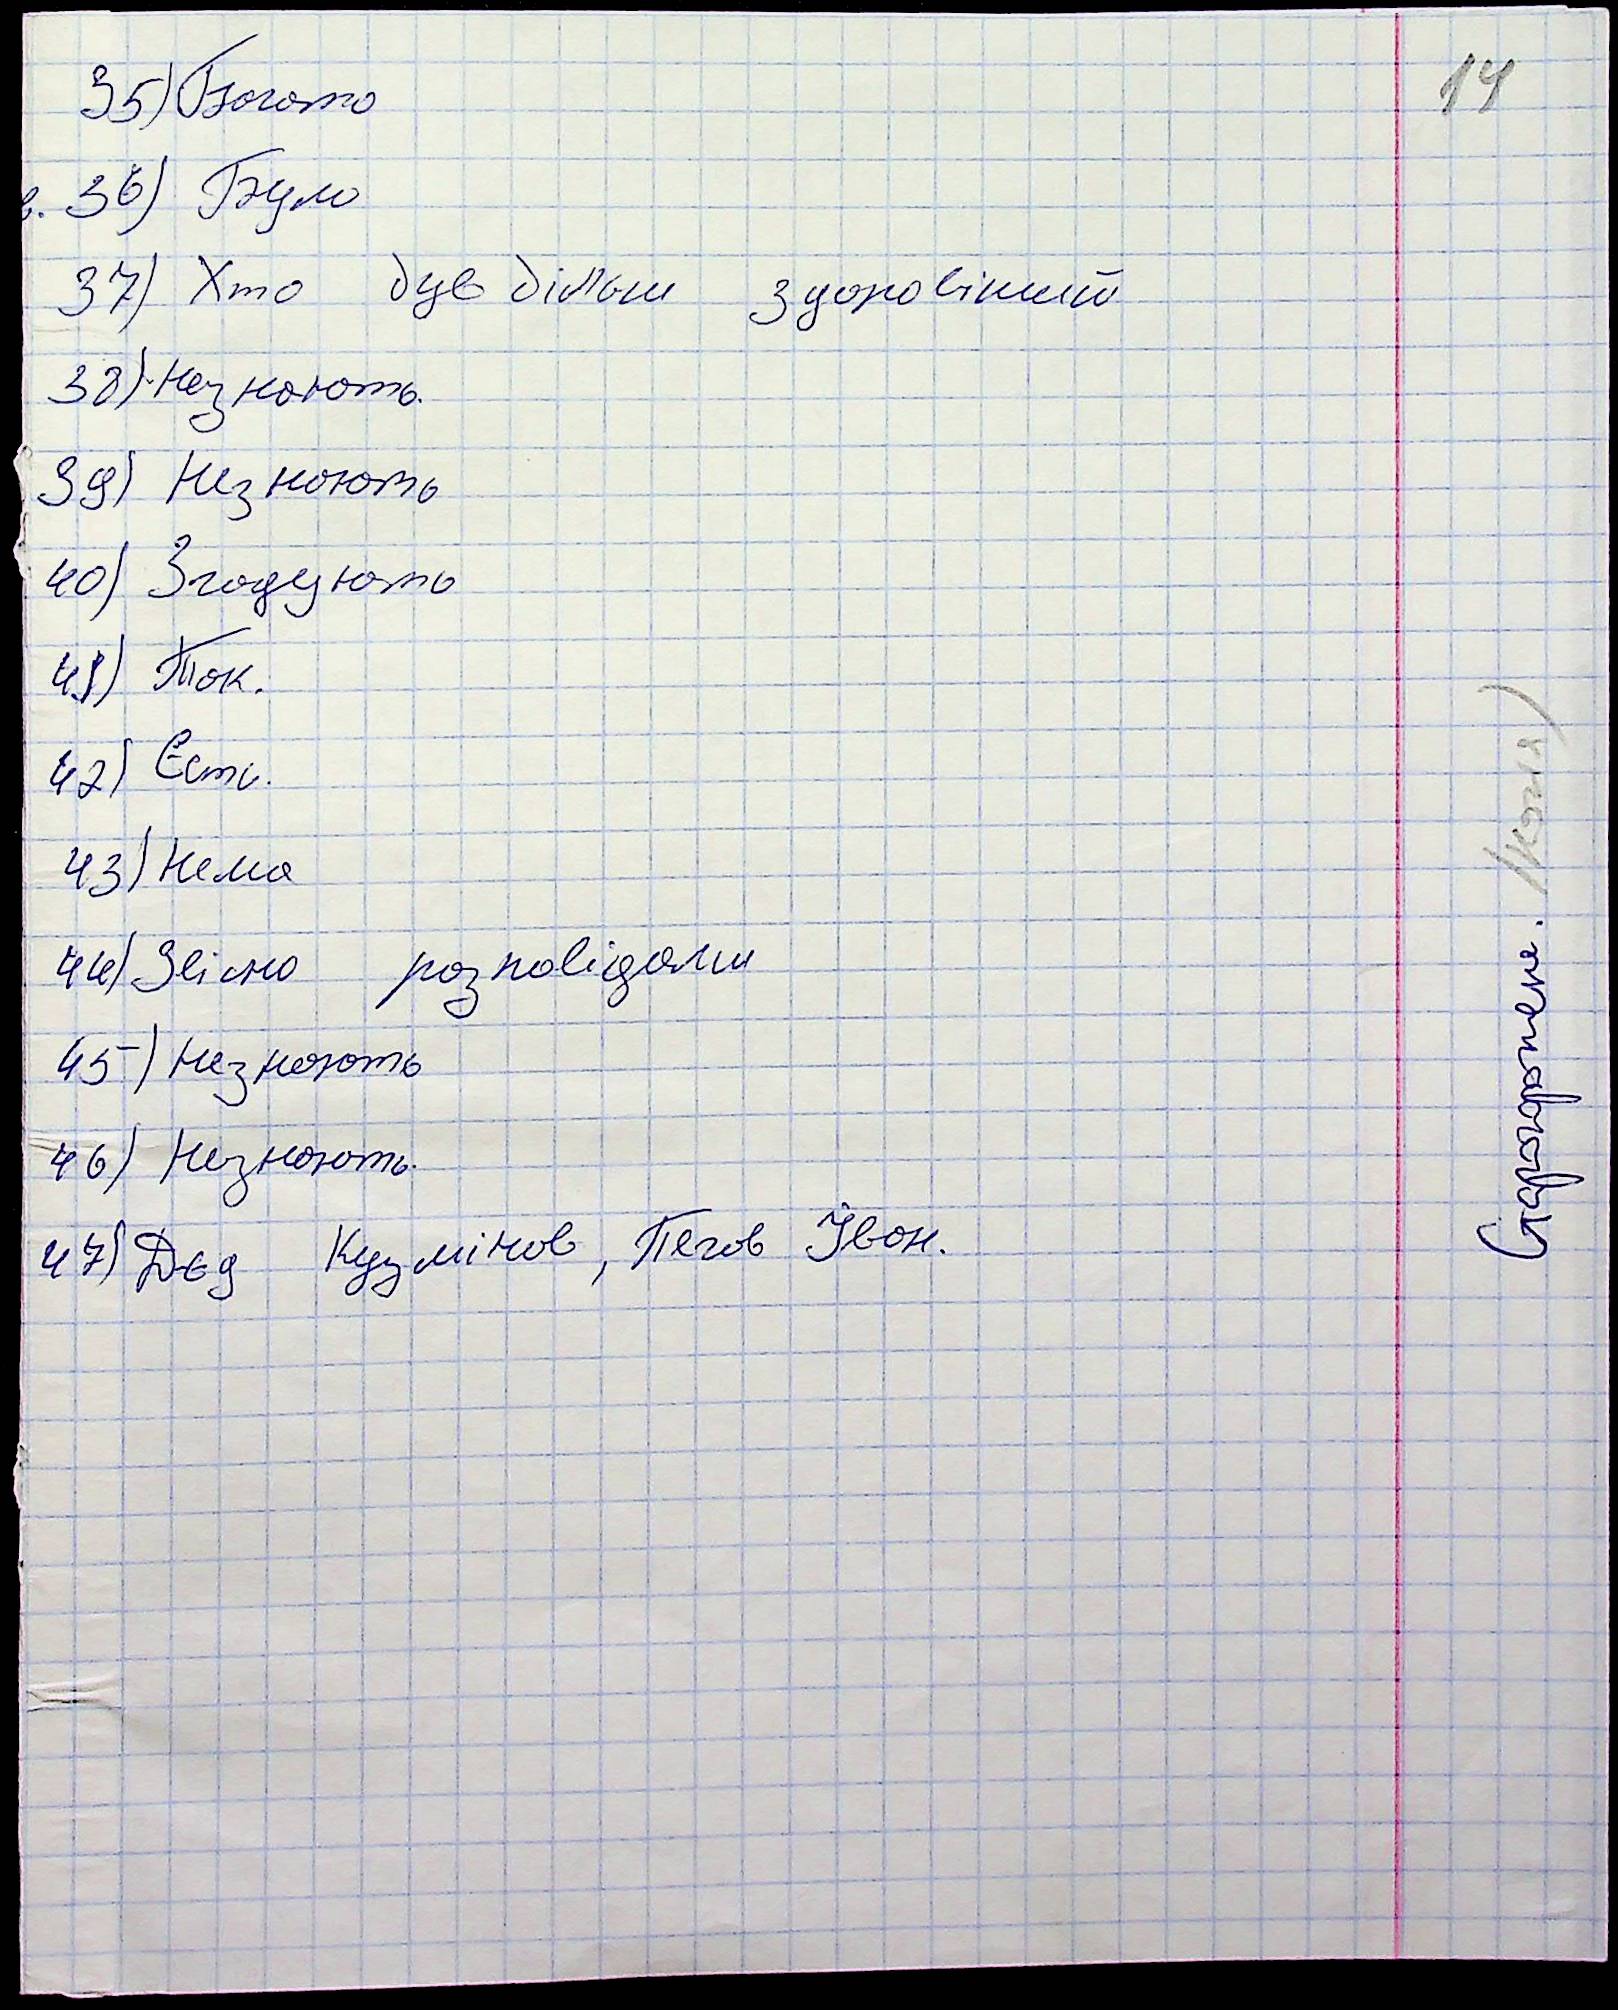 14
35) Богато
в. 36) Було
37) Хто був більш здоровіший
38) Незнають.
39) Незнають
40) Згадують
41) Так.
42) Єсть.
43) Нема
44) Звісно розповідали
45) Незнають
46) Незнають.
47) Дєд Кузмінов, Пегов Іван.
(копія)